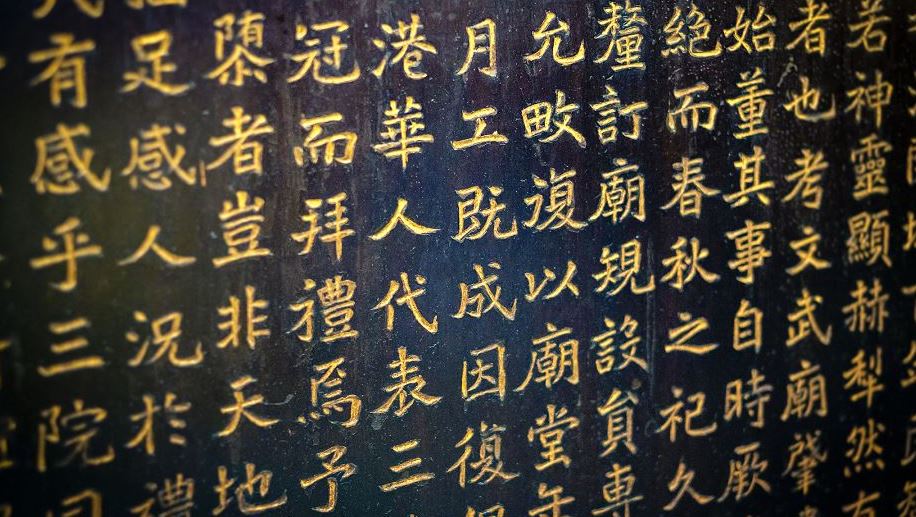 若神靈顯赫犁然有
者也考文武廟肇
始董其事自時厥
絕而春秋之祀久
釐訂廟規設員專
允畋復以廟堂年
月工既成因復
港華人代表三
冠而拜禮焉予
者豈非天地
足感人況於禮
有感乎三院同